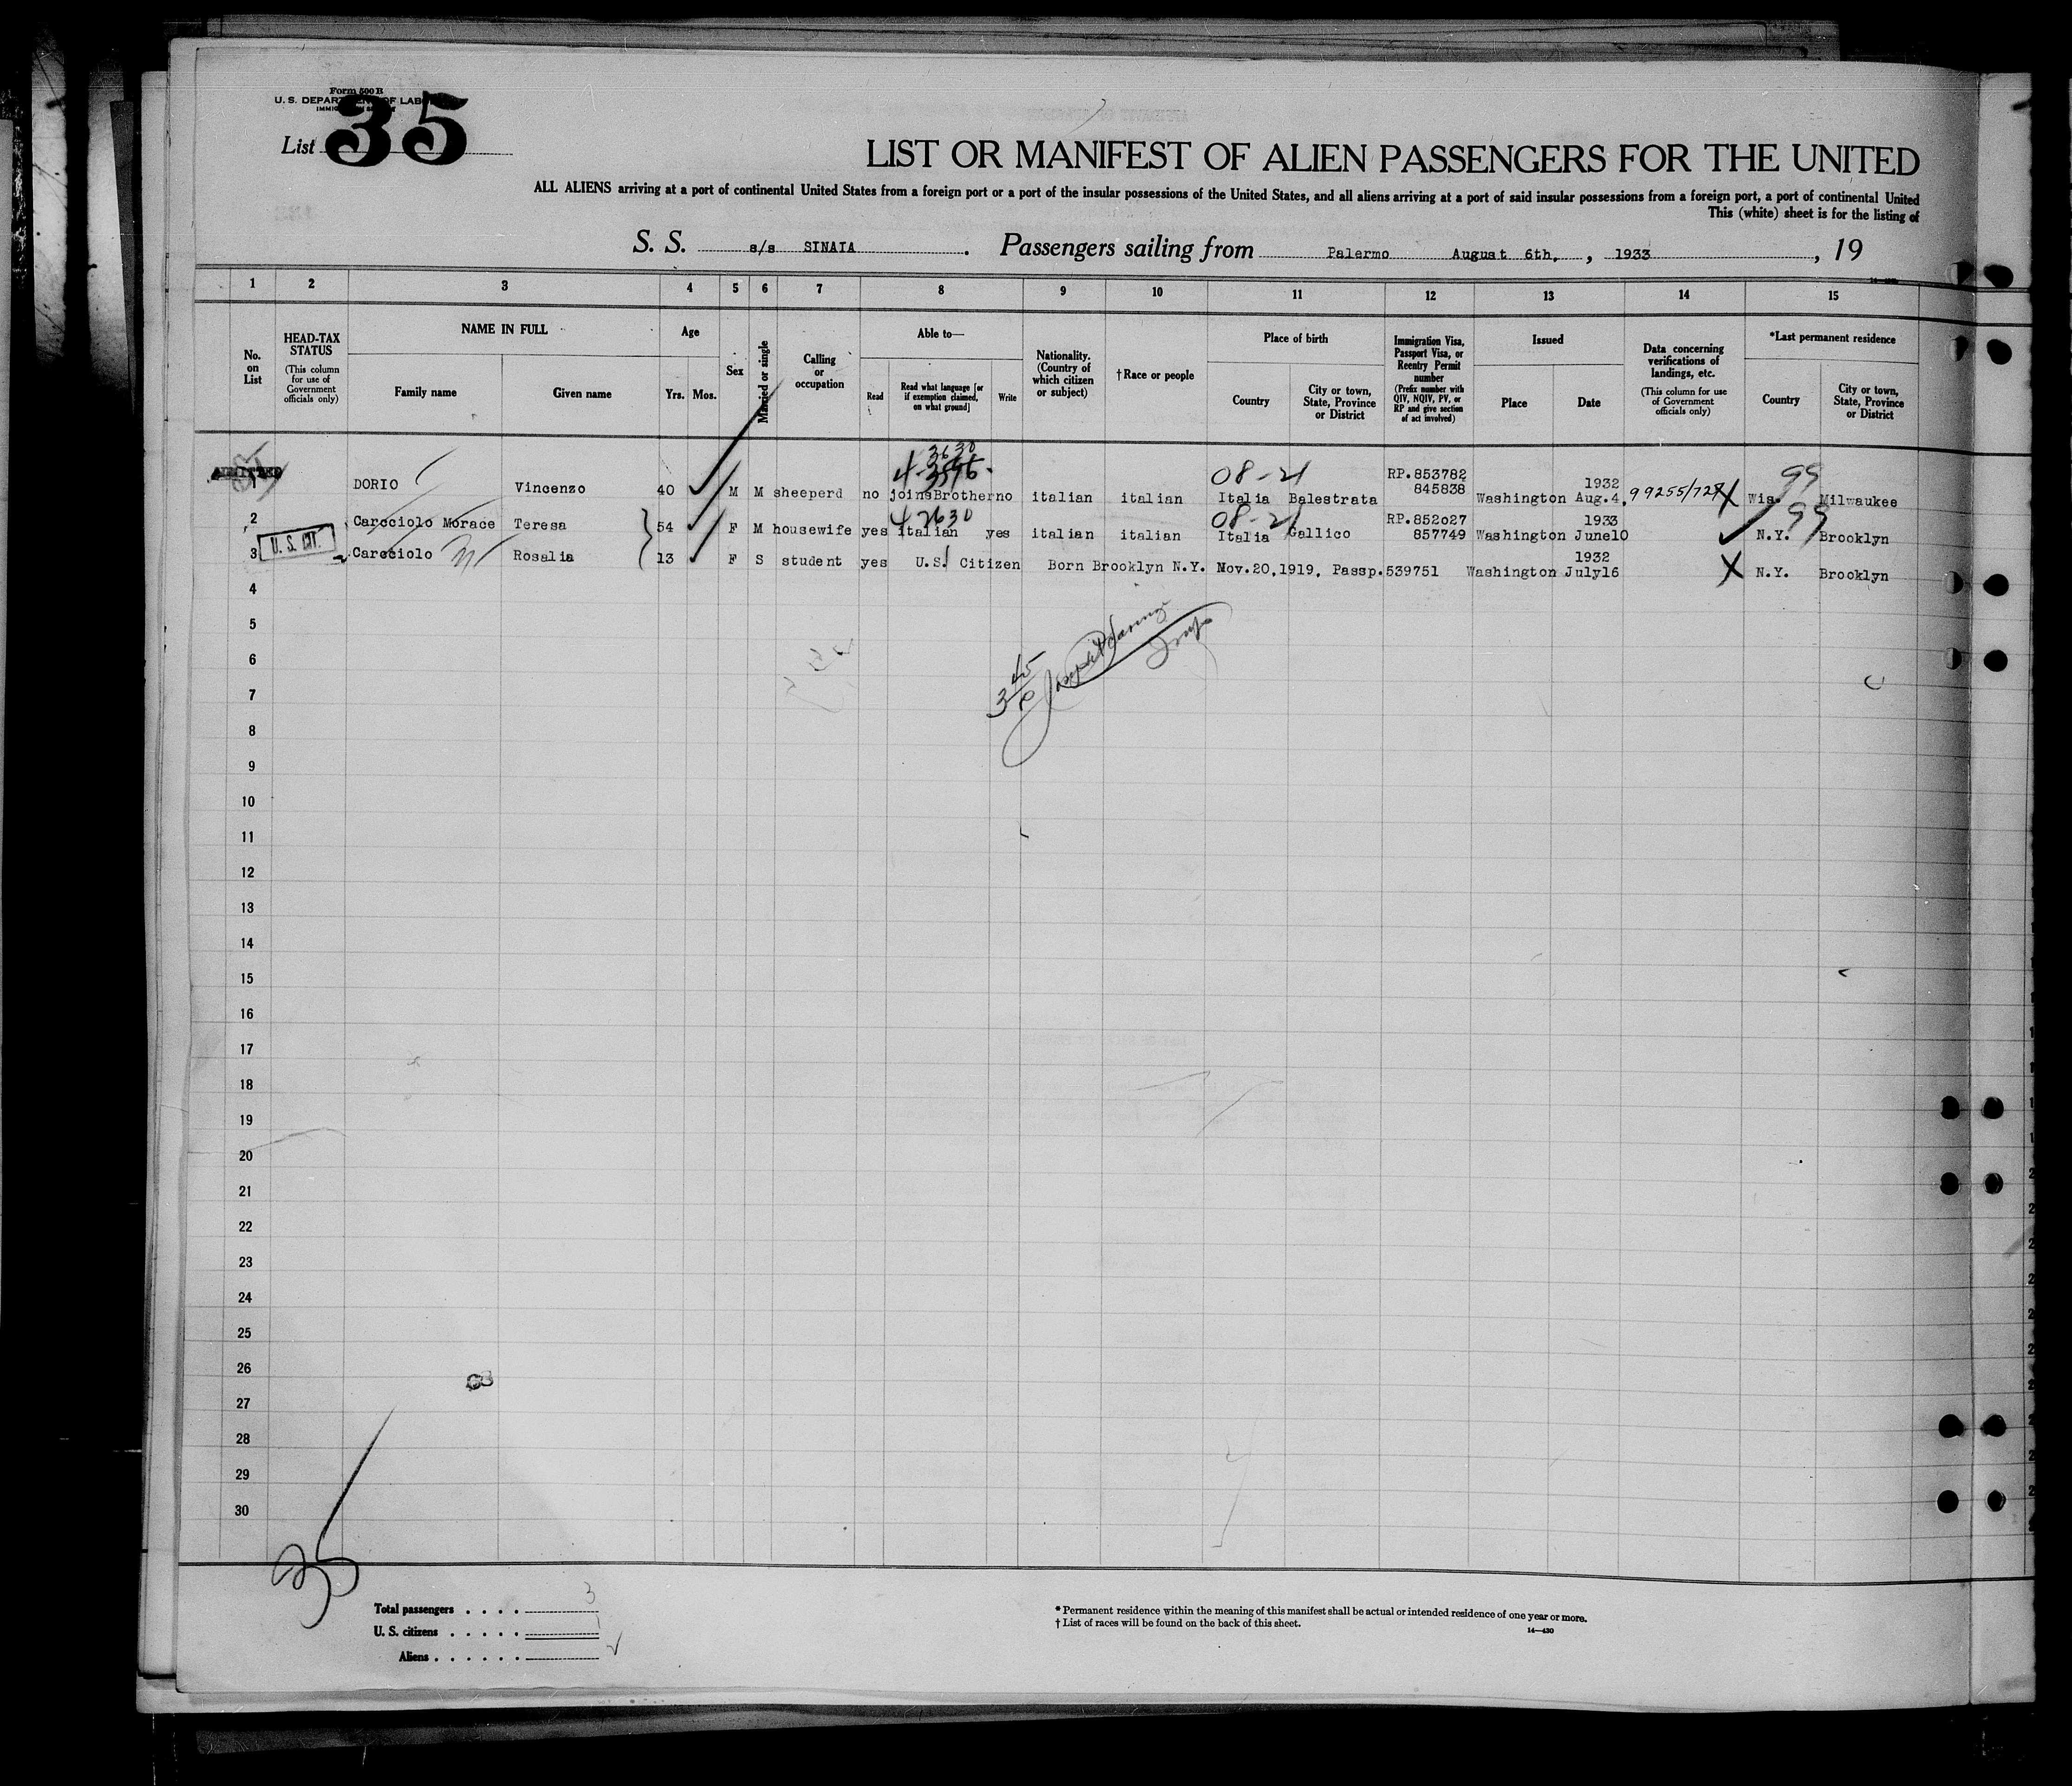 Form 500 B
U. S. DEPARTMENT OF LABOR
List 35
LIST OR MANIFEST OF ALIEN PASSENGERS FOR THE UNITED
ALL ALIENS arriving at a port of continental United States from a foreign port or a port of the insular possessions of the United States, and all aliens arriving at a port of said insular possessions from a foreign port, a port of continental United
This (white) sheet is for the listing of
S. S. s/s SINAIA. Passengers sailing from Palermo August 6th, , 1933 , 19
1 2 3 4 5 6 7 8 9 10 11 12 13 14 15
No. on List
HEAD-TAX STATUS (This column for use of Government officials only)
NAME IN FULL
Family name Given name
Age
Yrs. Mos.
Sex
Married or single
Calling or occupation
Able to—
Read Read what language [or if exemption claimed, on what ground] Write
Nationality. (Country of which citizen or subject)
†Race or people
Place of birth
Country City or town, State, Province or District
Immigration Visa, Passport Visa, or Reentry Permit number (Prefix number with QIV, NQIV, PV, or RP and give section of act involved)
Issued
Place Date
Data concerning verifications of landings, etc. (This column for use of Government officials only)
*Last permanent residence
Country City or town, State, Province or District
3630
08-21 RP.853782 1932 99
ADMITTED
1 DORIO Vincenzo 40 M M sheeperd no joinsBrother no italian italian Italia Balestrata 845838 Washington Aug.4, 99255/727 Wis. Milwaukee
4 2630 08-21 RP.852027 1933 99
2 Carcciolo Morace Teresa 54 F M housewife yes italian yes italian italian Italia Gallico 857749 Washington June10 N.Y. Brooklyn
U. S. CIT.
1932
3 Carcciolo Rosalia 13 F S student yes U.S. Citizen Born Brooklyn N.Y. Nov.20,1919, Passp.539751 Washington July16 N.Y. Brooklyn
4
5
6
7
8
9
10
11
12
13
14
15
16
17
18
19
20
21
22
23
24
25
26
27
28
29
30
35
Total passengers . . . . 3
U. S. citizens . . . . . 1
Aliens . . . . . .
* Permanent residence within the meaning of this manifest shall be actual or intended residence of one year or more.
† List of races will be found on the back of this sheet.
14—430